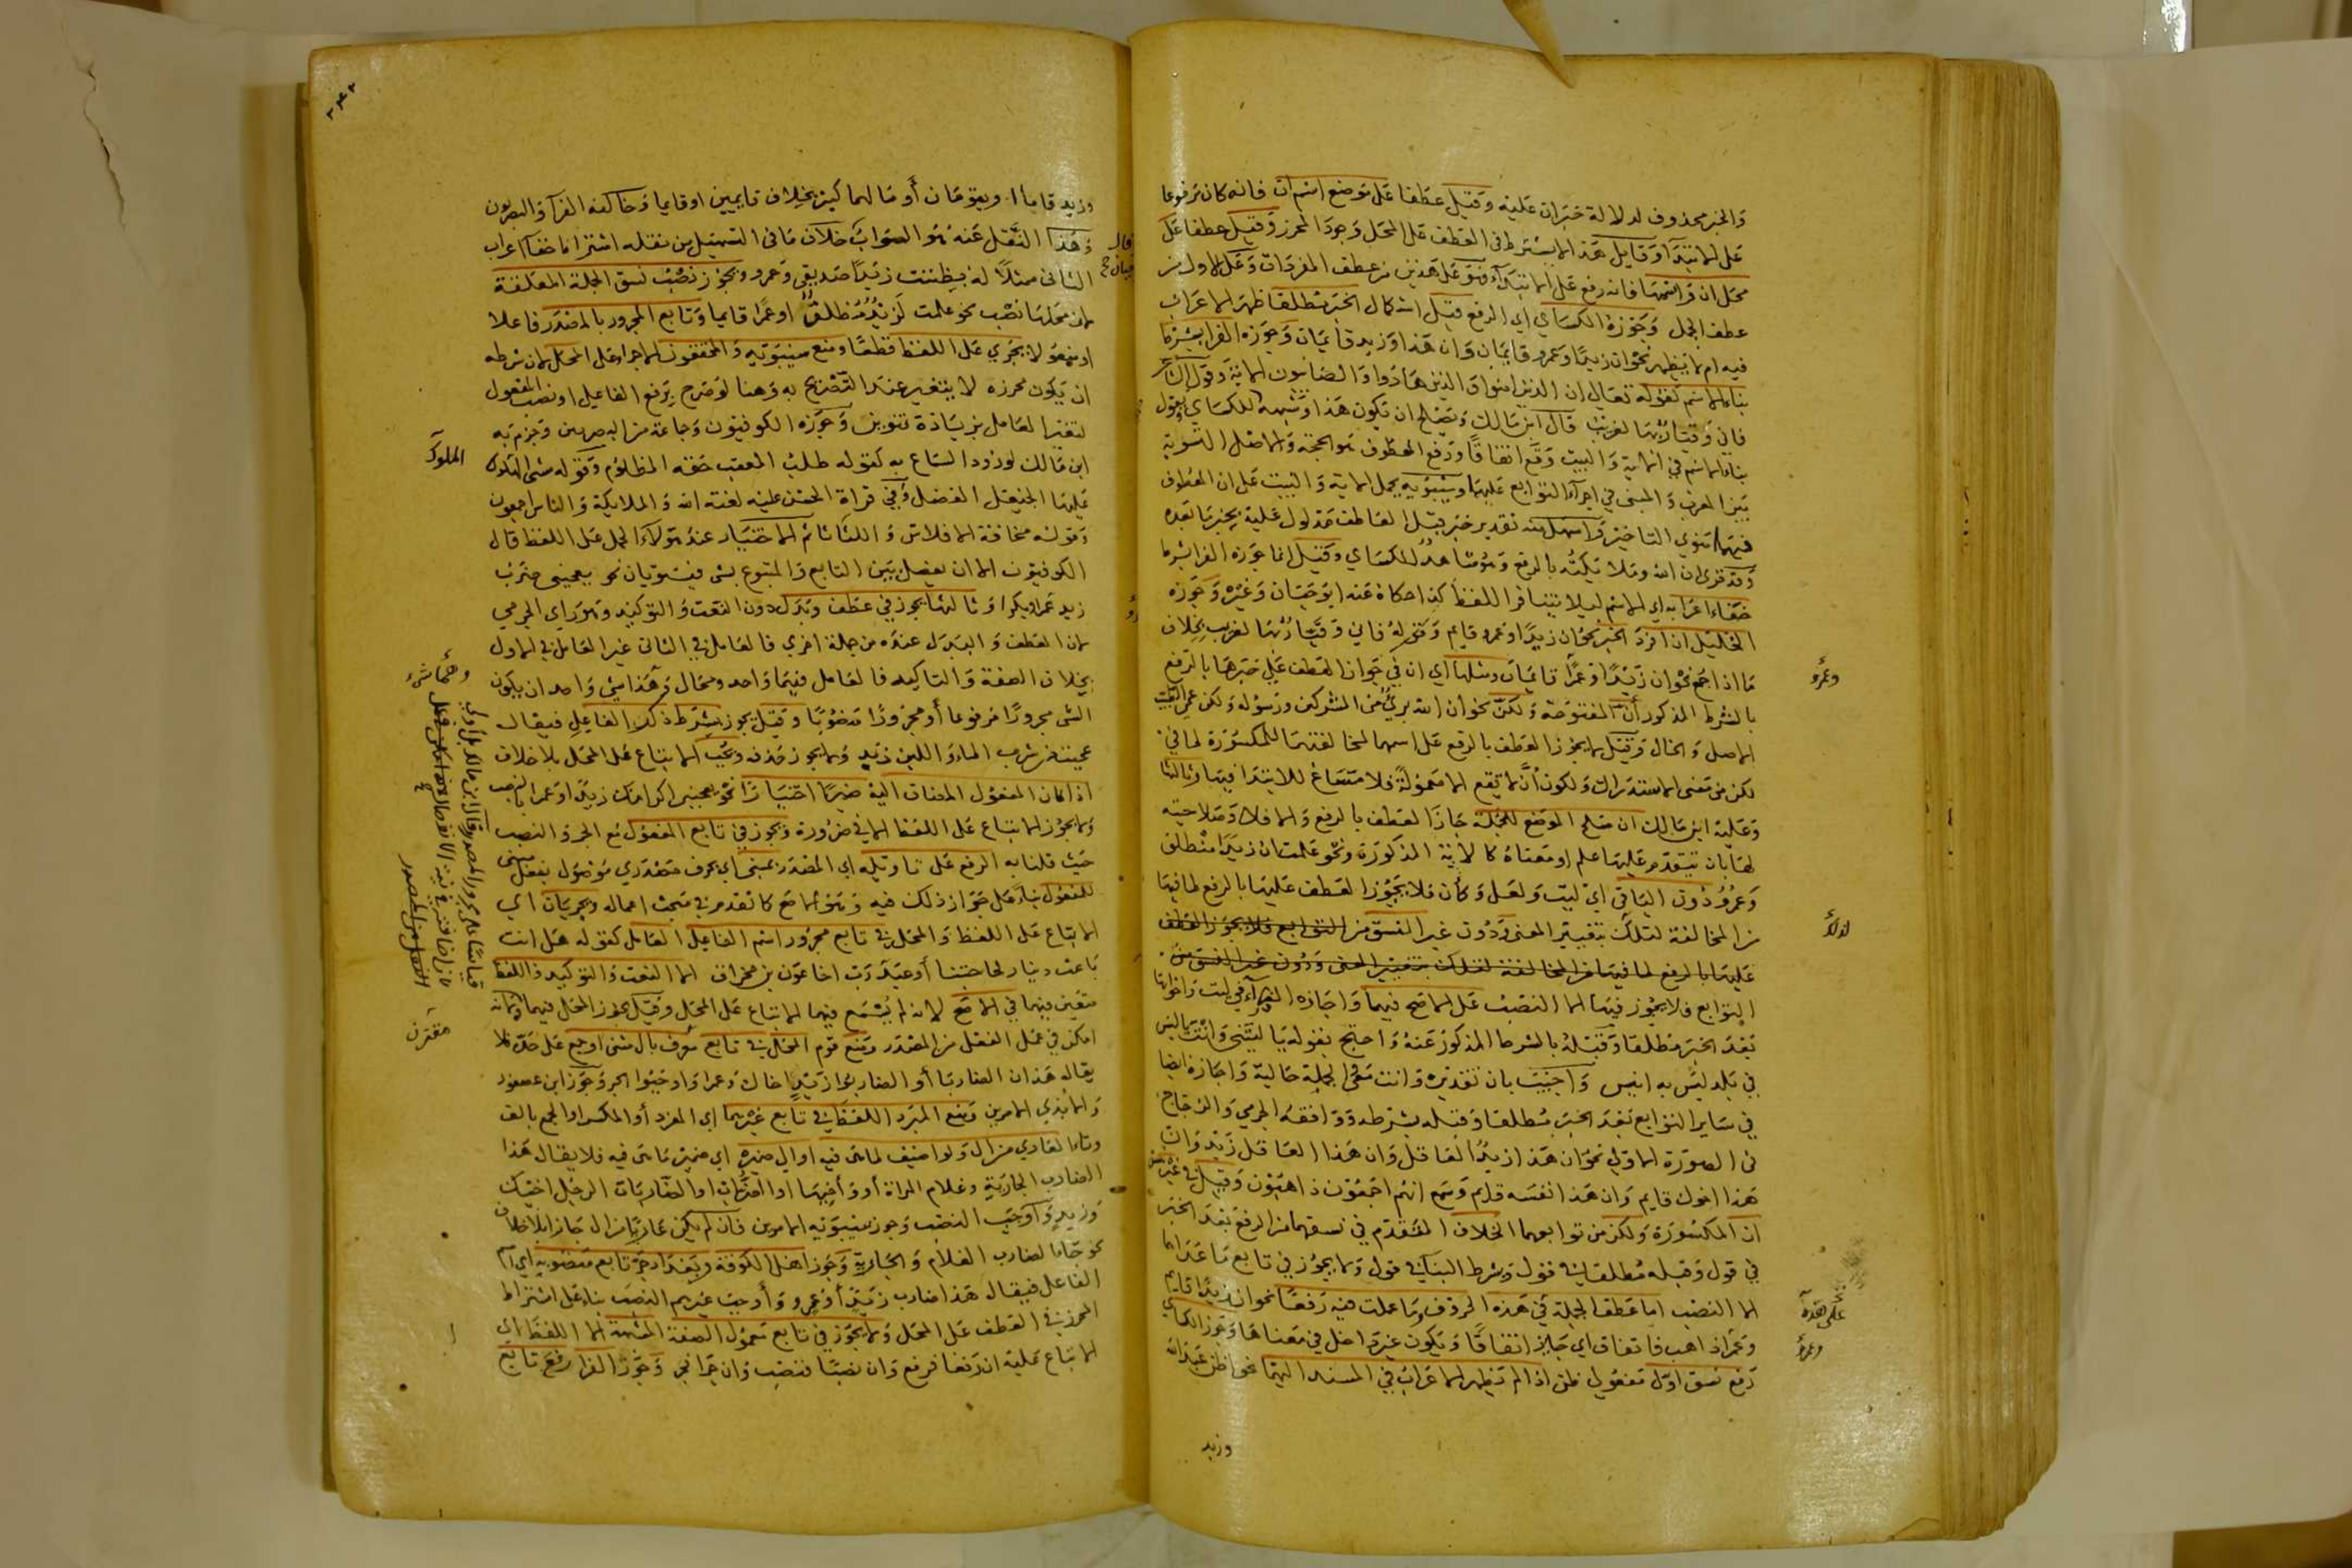 والخبر محذوف لدلالة خبر ان عليه وقيل عطفا على موضع اسم ان فانه كان مرفوعا
على الابتداء وقايل هذا لا يشترط في العطف على المحل وجود المحرز وقيل عطفا على
محل ان واسمها فانه رفع على الابتداء فهو على هذين من عطف المفردات وعلى الاول من
عطف الجمل وجوزه الكساي اي الرفع قبل استكمال الخبر مطلقا ظهر الاعراب
فيه ام لم يظهر نحو ان زيدا وعمرو قايمان وان هذا وزيد قايمان وجوزه الفرا بشرط
بناء الاسم كقوله تعالى ان الذين امنوا والذين هادوا والصابون الاية وقول
فاني وقيار بها لغريب قال ابن مالك ويصلح ان يكون هذا وشبهه للكساي
بناء الاسم في الاية والبيت وقع اتفاقا ورفع المعطوف هو الحجة والاصل التسوية
بين المعرب والمبني في اجراء التوابع عليهما وسيبويه يحمل الاية والبيت على ان المعطوف
فيهما منوي التاخير واسهل منه تقدير خبر قبل العاطف مدلول عليه بخبر ما بعده
وقد قرئ ان الله وملائكته بالرفع وهو شاهد للكساي وقيل انما جوزه الفرا بشرط
خفاء اعرابه اي الاسم ليلا يتنافر اللفظ كذا حكاه عنه ابو حيان وغيره وجوزه
الخليل ان افرد الخبر نحو ان زيدا وعمرو قايم وكقوله فاني وقيار بها لغريب بخلاف
ما اذا جمع نحو ان زيدا وعمرا قايمان ومثلها اي ان في جواز العطف على خبرها بالرفع
وعمرو
بالشرط المذكور أن المفتوحة ولكن نحو ان الله بريء من المشركين ورسوله ولكن عمي
الاصل والخال وقيل لا يجوز العطف بالرفع على اسمها لمخالفتهما للمكسورة لما في
لكن من معنى الاستدراك ولكون أن لا تقع الا معمولة فلا مساغ للابتدا فيها وثالثها
وعليه ابن مالك ان صلح الموضع للجملة جاز العطف بالرفع والا فلا وصلاحيته
لها بان يتقدم عليها علم او معناه كالاية المذكورة ونحو علمت ان زيدا منطلق
وعمرو دون الباقي اي ليت ولعل وكأن فلا يجوز العطف عليها بالرفع لما فيها
من المخالفة لتلك بتغيير المعنى ودون غير النسق من التوابع فلا يجوز العطف
عليها بالرفع لما فيها من المخالفة لتلك بتغيير المعنى ودون غير النسق من
التوابع فلا يجوز فيها الا النصب على الاصح فيهما واجازه الفراء في ليت واخواتها
بعد الخبر مطلقا وقبله بالشرط المذكور عنه واحتج بقوله يا ليتني وانت يا لميس
في بلد ليس به انيس واجيب بان تقديره وانت معي الجملة حالية واجازه ايضا
في ساير التوابع بعد الخبر مطلقا وقبله بشرطه ووافقه الجرمي والزجاج
في الصورة الاولى نحو ان هذا زيدا العاقل وان هذا العاقل زيد وان
هذا اخوك قايم وان هذا نفسه قايم وسمع انهم اجمعون ذاهبون وقيل في
ان المكسورة ولكن من توابعهما الخلاف المتقدم في نسقهما من الرفع بعد الخبر
في قول وقبله مطلقا في قول وبشرط البنا في قول ولا يجوز في تابع ما عداهما
الا النصب اما عطف الجملة في هذه الحروف وما عملت فيه رفعا نحو ان زيدا قايم
وعمرا ذاهب فاتفاق اي جايز اتفاقا ويكون غير داخل في معناها وجوز الكساي
رفع نسق اول مفعولي ظن اذا لم تظهر الاعراب في المسند اليهما نحو اظن عبد الله
وزيد
وزيد قاما او يقومان أو مالهما كثير بخلاف قايمين او قايما وخالفه الفرا والبصريون
وهذا النقل عنه هو الصواب خلاف ما في التسهيل من نقله اشتراط خفا اعراب
الثاني ممثلا له بظننت زيدا صديقي وعمرو ويجوز نصب نسق الجملة المعلقة
لان محلها نصب نحو علمت لزيد منطلق او عمرا قايما وتابع المجرور بالمصدر فاعلا
او مفعولا يجري على اللفظ قطعا ومنع سيبويه والمحققون الاجراء على المحل لان شرطه
ان يكون محرزه لا يتغير عند التصريح به وهنا لو صرح برفع الفاعل او نصب المفعول
لتغير العامل بزيادة تنوين وجوزه الكوفيون وجماعة من البصريين وجزم به
ابن مالك لورود السماع به كقوله طلب المعقب حقه المظلوم وقوله مشي الهلوك
عليها الخيعل الفضل وفي قراة الحسن عليه لعنة الله والملايكة والناس اجمعون
وقوله مخافة الافلاس والليانا ثم الاختيار عند هولاء الحمل على اللفظ قال
الكوفيون الا ان يفصل بين التابع والمتبوع بشي فيستويان نحو يعجبني ضرب
زيد عمرا وبكرا وثالثها يجوز في عطف وبدل دون النعت والتوكيد وهو راي الجرمي
لان العطف والبدل عنده من جملة اخرى فالعامل في الثاني غير العامل في الاول
بخلاف الصفة والتاكيد فالعامل فيهما واحد ومحال وهذا شي واحد ان يكون
الشي مجرورا مرفوعا أو مجرورا منصوبا وقيل يجوز بشرط ذكر الفاعل فيقال
عجبت من شرب الماء واللبن زيد ولا يجوز حذفه ويجب الاتباع على المحل بلا خلاف
اذا كان المفعول المضاف اليه ضميرا اختيارا نحو يعجبني اكرامك زيدا وعمرا بالنصب
ولا يجوز الاتباع على اللفظ الا في ضرورة ويجوز في تابع المفعول مع الجر والنصب
حيث قلنا به الرفع على تاويله اي المصدر بمبني اي بحرف مصدري موصول بفعل مبني
للمفعول بناء على جواز ذلك فيه وهو الاصح كما تقدم في مبحث اعماله ويجريان اي
الاتباع على اللفظ والمحل في تابع مجرور اسم الفاعل العامل كقوله هل انت
باعث دينار لحاجتنا أو عبد رب اخا عون بن مخراق اما النعت والتوكيد فاللفظ
متعين فيهما في الاصح لانه لم يسمع فيهما الاتباع على المحل وقيل يجوز المحل فيهما
امكن في عمل الفعل من المصدر ومنع قوم المحل في تابع معرف بال مثنى او جمع على حده فلا
يقال هذان الضاربا أو الضاربوا زيد اخاك وعمرا واوجبوا الجر وجوز ابن عصفور
والابذي الامرين ومنع المبرد اللفظ في تابع غيرهما اي المفرد أو المكسر او الجمع بالف
وتاء العادي من ال ولو اضيف لما هي فيه او الى ضميره اي ضمير ما هي فيه فلا يقال هذا
الضارب الجارية وغلام المراة أو واخيها او الضاربات الرجل اخيك
وزيد واوجب النصب وجوز سيبويه الامرين فان لم يكن عاريا من ال جاز بلا خلاف
نحو جاءا لضارب الغلام والجارية وجوز اهل الكوفة وبغداد جر تابع منصوبه اي
الفاعل فيقال هذا ضارب زيدا وعمرو وأوجب غيرهم النصب بناء على اشتراط
المحرز في العطف على المحل ولا يجوز في تابع معمول الصفة المشبهة الا اللفظ اي
الاتباع عليه ان رفعا فرفع وان نصبا فنصب وان جرا فجر وجوز الفرا رفع تابع
الملوك